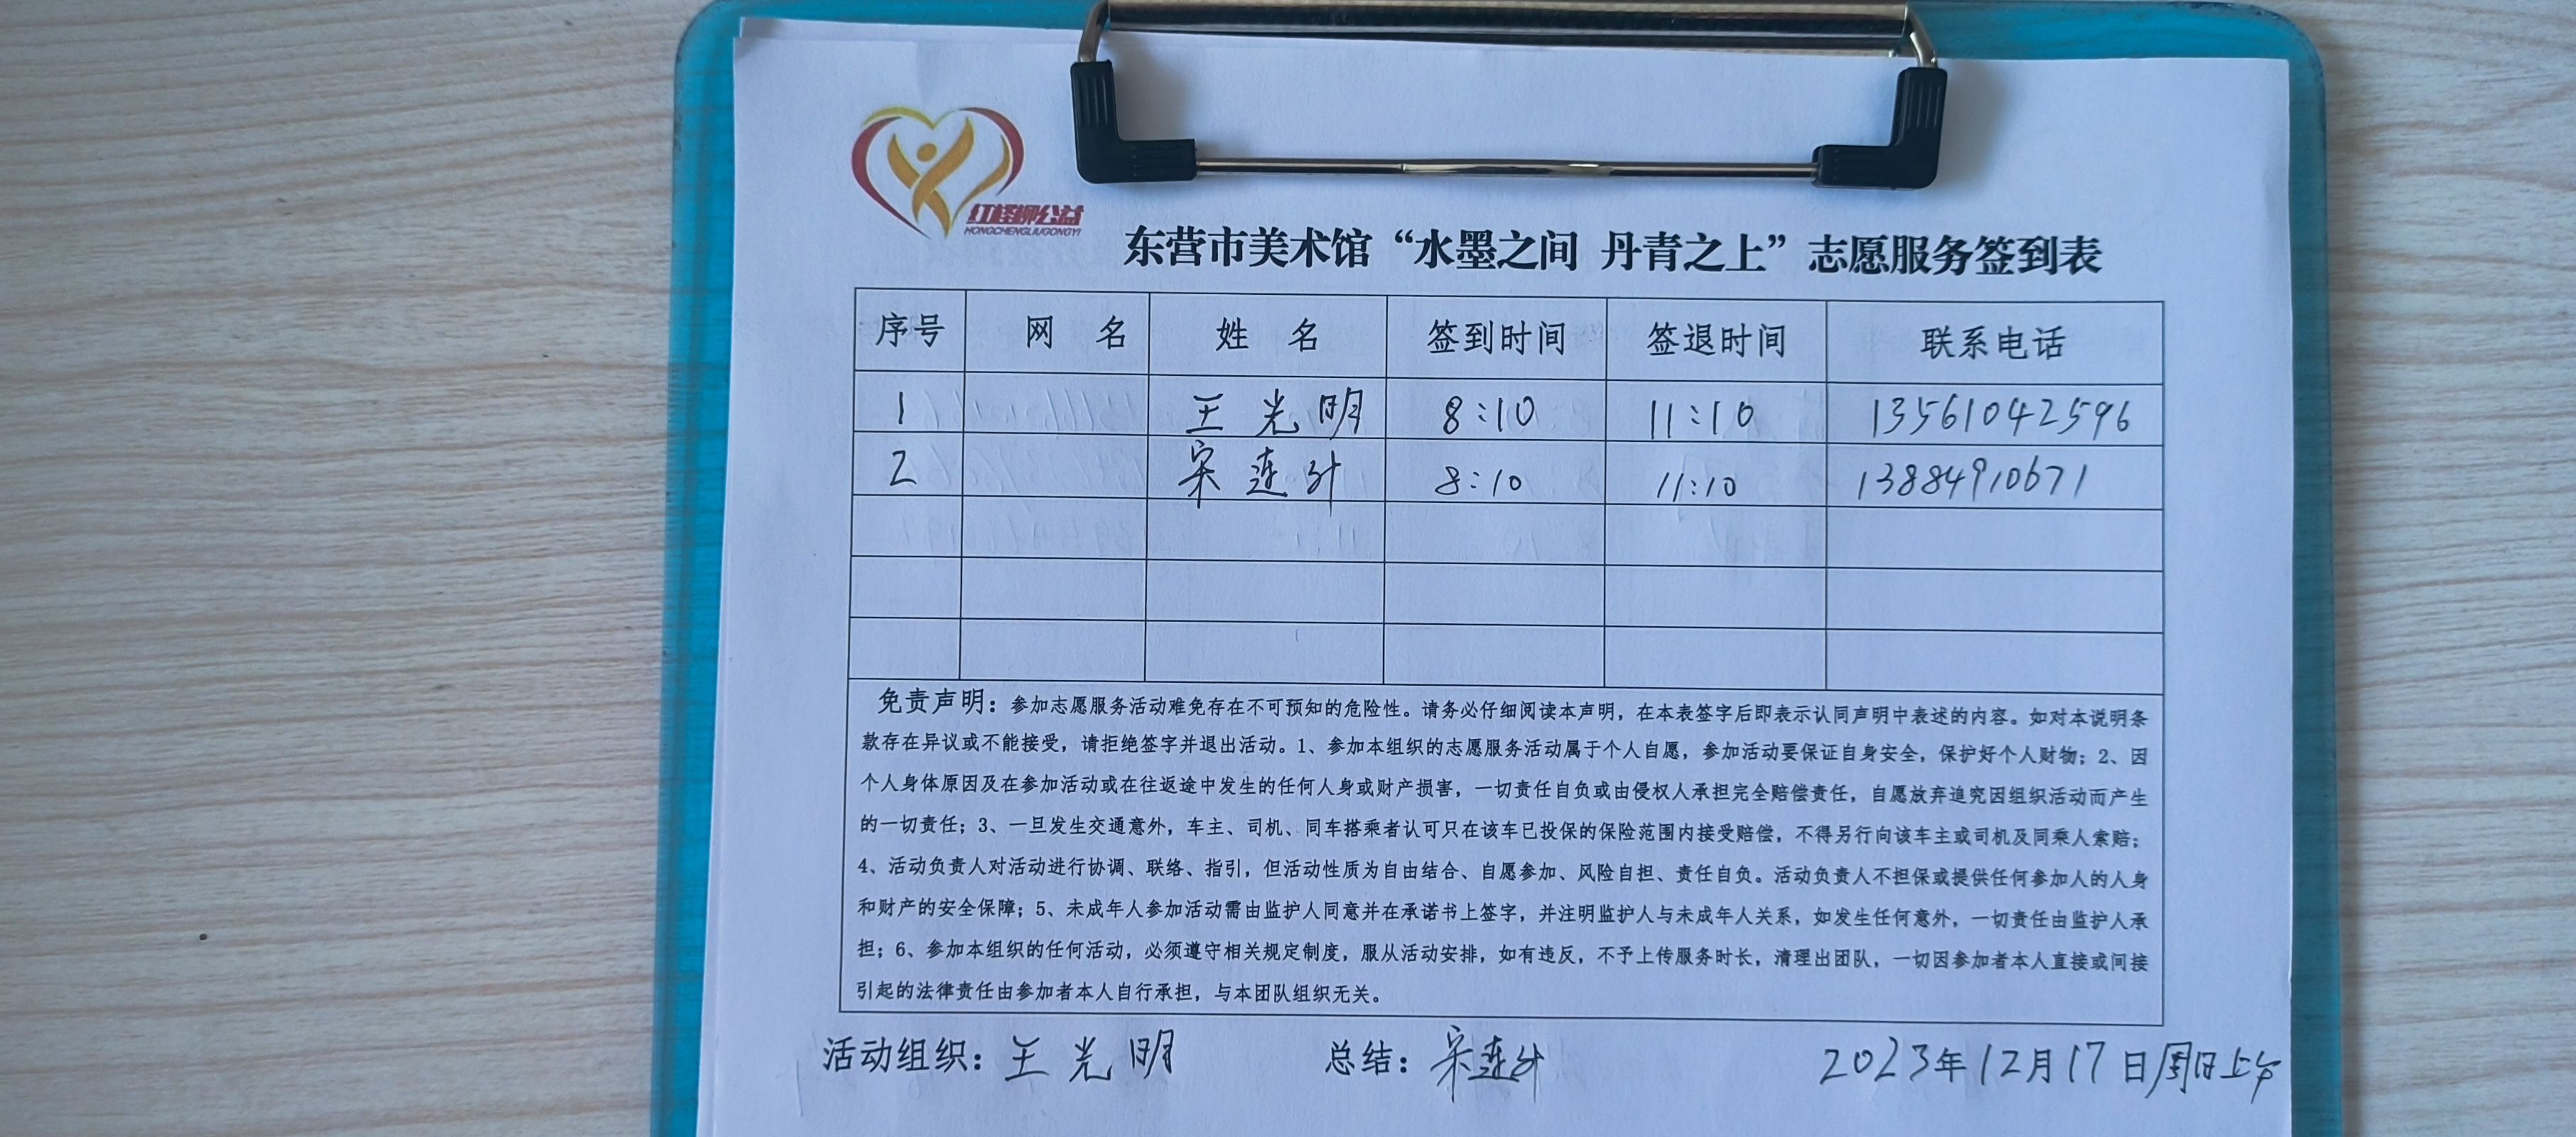 红柽柳公益
HONGCHENGLIUGONGYI
东营市美术馆“水墨之间 丹青之上”志愿服务签到表
序号 网 名 姓 名 签到时间 签退时间 联系电话
1 王光明 8:10 11:10 13561042596
2 宋连升 8:10 11:10 13884910671
免责声明：参加志愿服务活动难免存在不可预知的危险性。请务必仔细阅读本声明，在本表签字后即表示认同声明中表述的内容。如对本说明条
款存在异议或不能接受，请拒绝签字并退出活动。1、参加本组织的志愿服务活动属于个人自愿，参加活动要保证自身安全，保护好个人财物；2、因
个人身体原因及在参加活动或在往返途中发生的任何人身或财产损害，一切责任自负或由侵权人承担完全赔偿责任，自愿放弃追究因组织活动而产生
的一切责任；3、一旦发生交通意外，车主、司机、同车搭乘者认可只在该车已投保的保险范围内接受赔偿，不得另行向该车主或司机及同乘人索赔；
4、活动负责人对活动进行协调、联络、指引，但活动性质为自由结合、自愿参加、风险自担、责任自负。活动负责人不担保或提供任何参加人的人身
和财产的安全保障；5、未成年人参加活动需由监护人同意并在承诺书上签字，并注明监护人与未成年人关系，如发生任何意外，一切责任由监护人承
担；6、参加本组织的任何活动，必须遵守相关规定制度，服从活动安排，如有违反，不予上传服务时长，清理出团队，一切因参加者本人直接或间接
引起的法律责任由参加者本人自行承担，与本团队组织无关。
活动组织：王光明 总结：宋连升 2023年12月17日周日上午